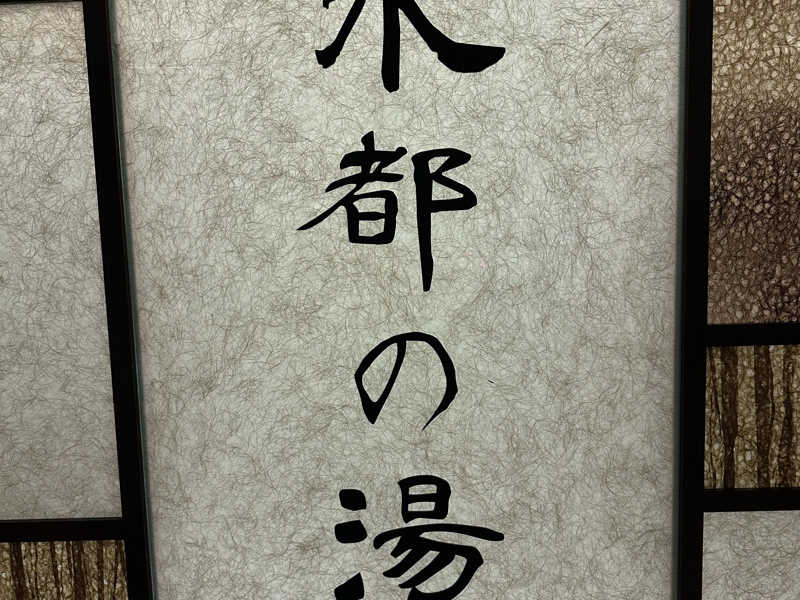 都の湯